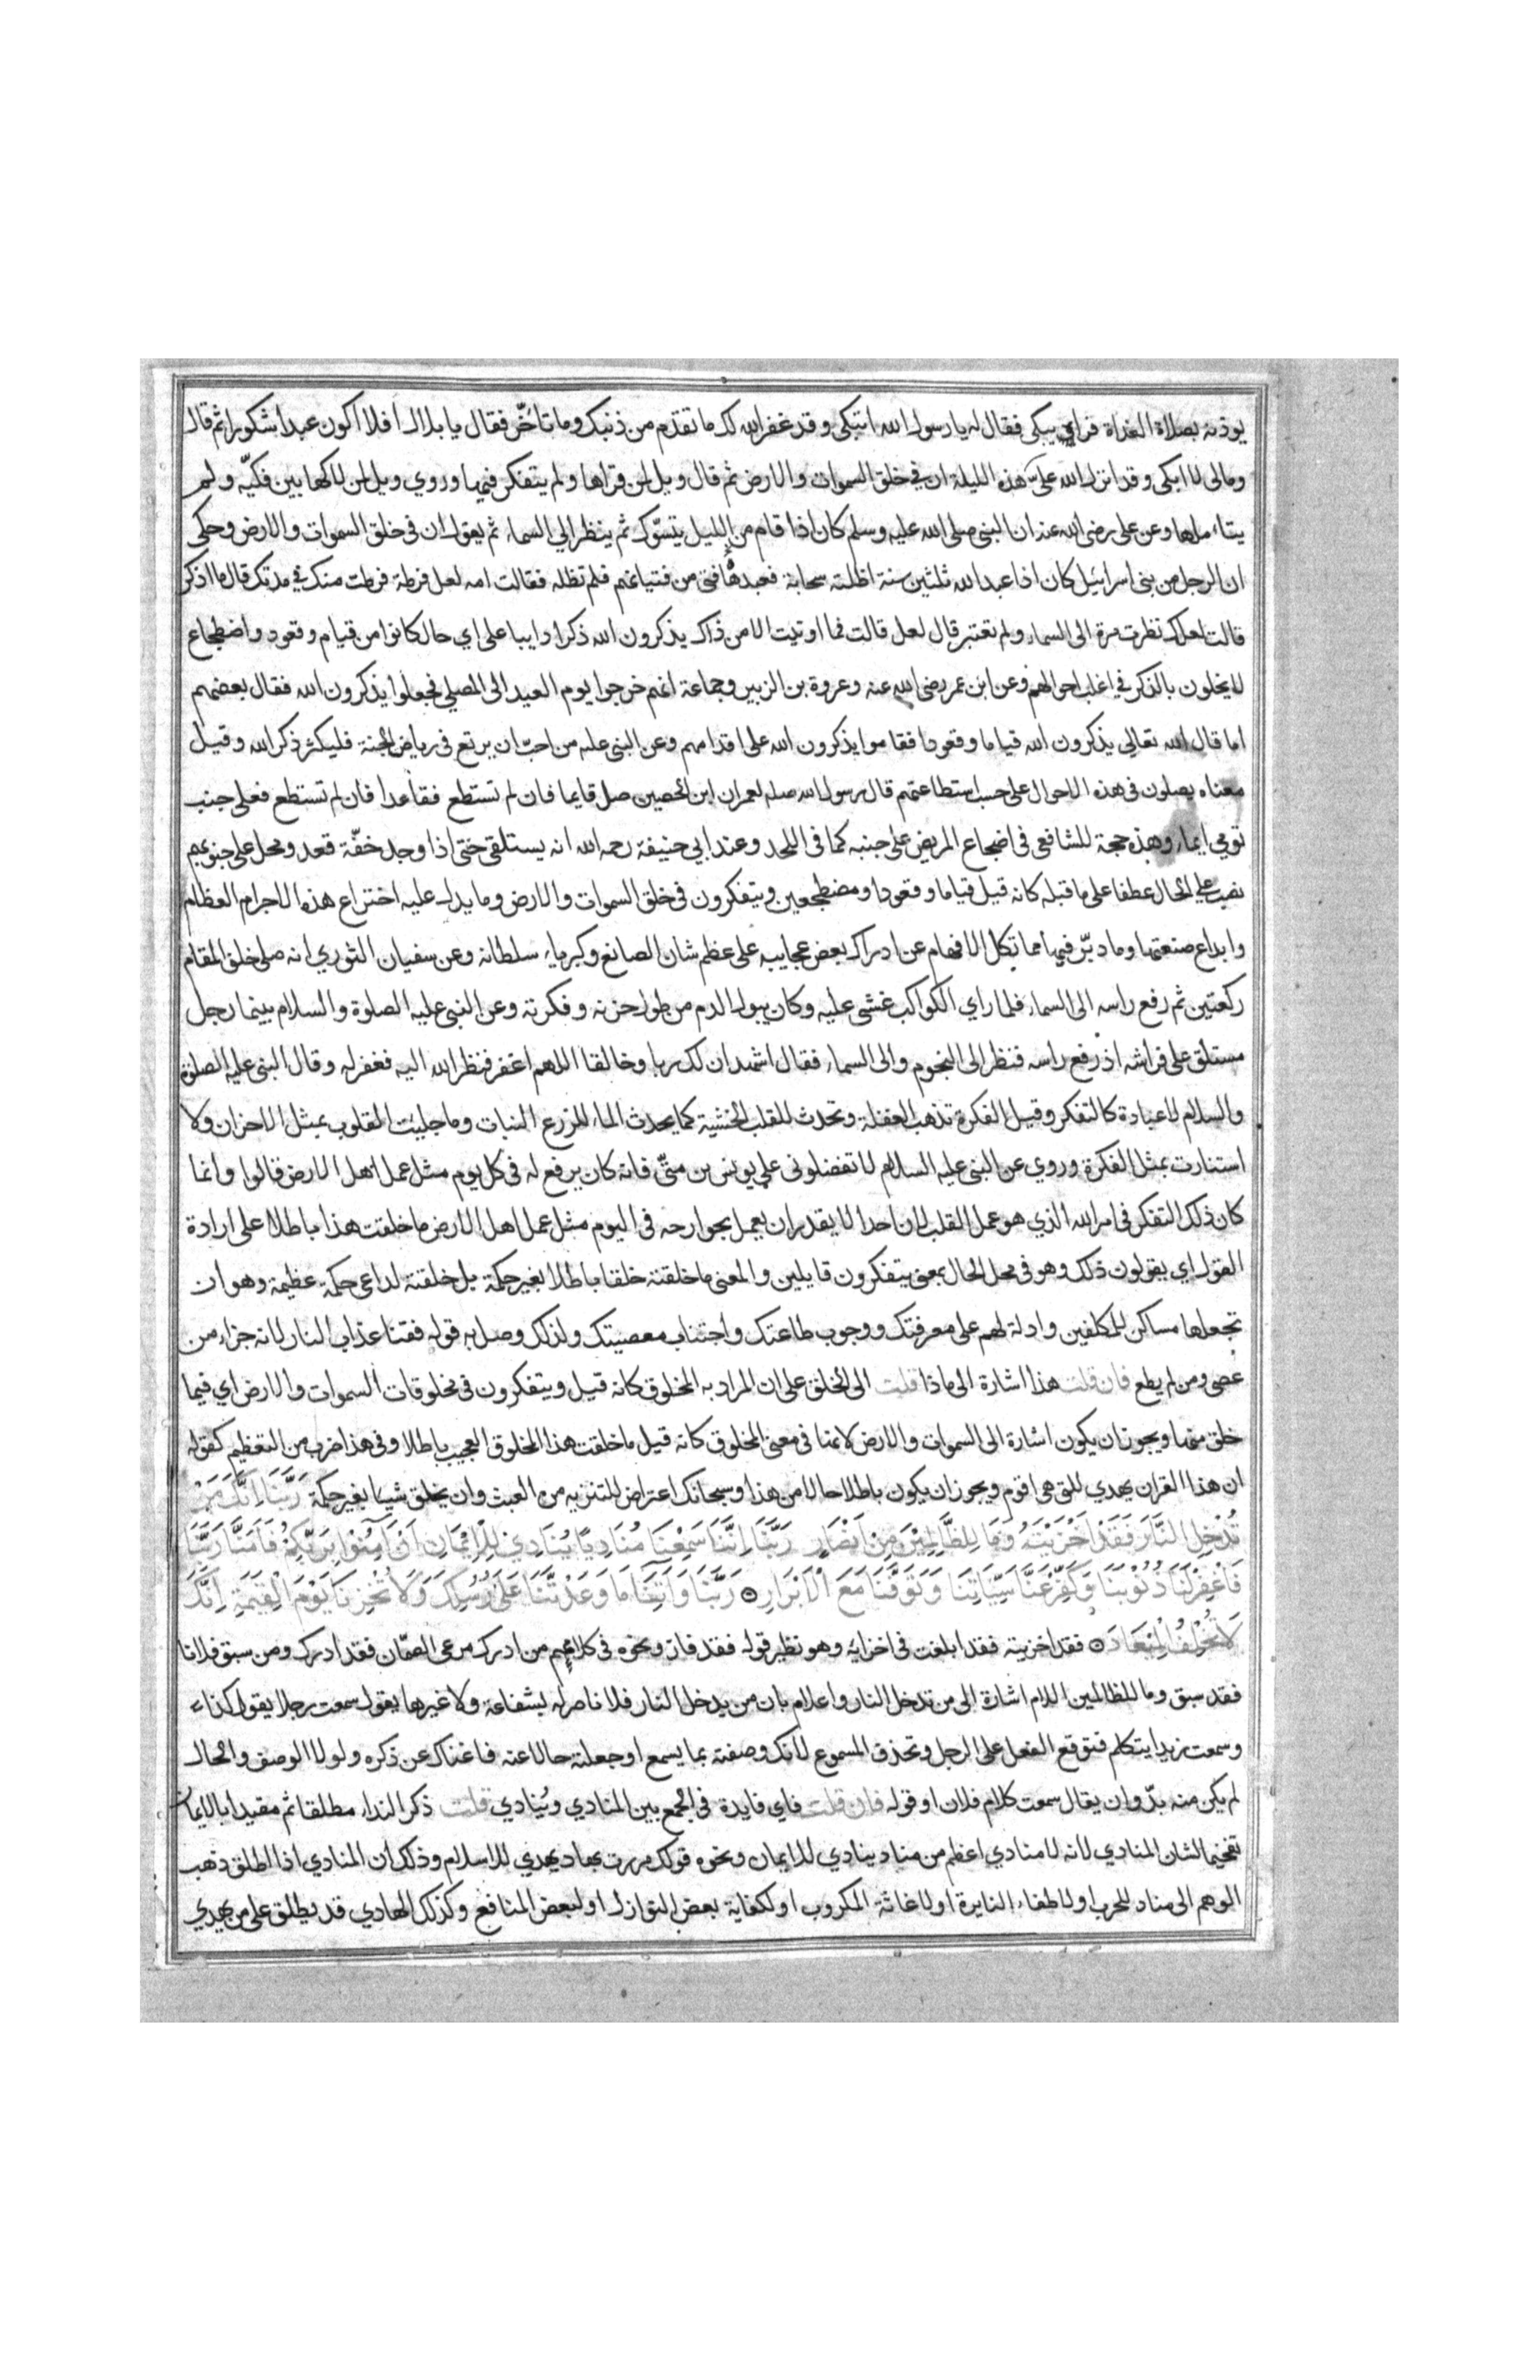 يوذنه بصلاة الغداة فراى يبكى فقال له يا رسول الله اتبكى وقد غفر الله لك ما تقدم من ذنبك وما تاخّر فقال يا بلال افلا اكون عبدا شكورا ثم قال
ومالى لا ابكى وقد انزل الله علىّ هذه الليلة ان في خلق السموات والارض ثم قال ويل لمن قراها ولم يتفكر فيها وروي ويل لمن لاكها بين فكيّه ولم
يتاملها وعن على رضى الله عنه ان النبى صلى الله عليه وسلم كان اذا قام من الليل يتسوّك ثم ينظر الي السماء ثم يقول ان فى خلق السموات والارض وحكى
ان الرجل من بنى اسرائيل كان اذا عبد الله ثلثين سنة اظلته سحابة فعبدها فتى من فتيانهم فلم تظله فقالت امه لعل فرطة فرطت منك في مدتك قال ما اذكر
قالت لعلك نظرت مرة الى السماء ولم تعتبر قال لعل قالت فما اوتيت الا من ذاك يذكرون الله ذكرا دايبا على اي حال كانوا من قيام وقعود واضطجاع
لا يخلون بالذكر في اغلب احوالهم وعن ابن عمر رضى الله عنه وعروة بن الزبير وجماعة انهم خرجوا يوم العيد الى المصلي فجعلوا يذكرون الله فقال بعضهم
اما قال الله تعالي يذكرون الله قياما وقعودا فقاموا يذكرون الله على اقدامهم وعن النبى عليه من احبّ ان يرتع فى رياض الجنة فليكثر ذكر الله وقيل
معناه يصلون فى هذه الاحوال على حسب استطاعتهم قال رسول الله صلم لعمران ابن الحصين صل قايما فان لم تستطع فقاعدا فان لم تستطع فعلى جنب
تومي ايماء وهذه حجة للشافعى فى اضجاع المريض على جنبه كما فى اللحد وعند ابي حنيفة رحمه الله انه يستلقى حتى اذا وجد خفّة قعد ومحل على جنوبهم
نصب على الحال عطفا على ما قبله كانه قيل قياما وقعودا ومضطجعين ويتفكرون فى خلق السموات والارض وما يدل عليه اختراع هذه الاجرام العظام
وابداع صنعتها وما دبّر فيها مما تكل الافهام عن ادراك بعض عجايبه على عظم شان الصانع وكبرياء سلطانه وعن سفيان الثوري انه صلى خلف المقام
ركعتين ثم رفع راسه الى السماء فلما راي الكواكب غشى عليه وكان يبول الدم من طول حزنه وفكرته وعن النبى عليه الصلوة والسلام بينما رجل
مستلق على فراشه اذ رفع راسه فنظر الى النجوم والى السماء فقال اشهد ان لك ربا وخالقا اللهم اغفر فنظر الله اليه فغفر له وقال النبى عليه الصلوة
والسلام لا عبادة كالتفكر وقيل الفكرة تذهب الغفلة وتحدث للقلب الخشية كما يحدث الماء للزرع النبات وما جليت القلوب بمثل الاحزان ولا
استنارت بمثل الفكرة وروي عن النبى عليه السلام لا تفضلونى على يونس بن متّى فانه كان يرفع له فى كل يوم مثل عمل اهل الارض قالوا وانما
كان ذلك التفكر فى امر الله الذي هو عمل القلب لان احدا لا يقدر ان يعمل بجوارحه فى اليوم مثل عمل اهل الارض ما خلقت هذا باطلا على ارادة
القول اي يقولون ذلك وهو فى محل الحال بمعنى يتفكرون قايلين والمعنى ما خلقته خلقا باطلا بغير حكمة بل خلقته لداعى حكمة عظيمة وهو ان
تجعلها مساكن للمكلفين وادلة لهم على معرفتك ووجوب طاعتك واجتناب معصيتك ولذلك وصل به قوله فقنا عذاب النار لانه جزاء من
عصى ومن لم يطع فان قلت هذا اشارة الى ماذا قلت الى الخلق على ان المراد به المخلوق كانه قيل ويتفكرون فى مخلوقات السموات والارض اي فيما
خلق منها ويجوز ان يكون اشارة الى السموات والارض لانها فى معنى المخلوق كانه قيل ما خلقت هذا المخلوق العجيب باطلا وفى هذا ضرب من التعظيم كقوله
ان هذا القران يهدي للتى هى اقوم ويجوز ان يكون باطلا حالا من هذا وسبحانك اعتراض للتنزيه من العبث وان يخلق شيا بغير حكمة رَبَّنَا اِنَّكَ مَنْ
تُدْخِلِ النَّارَ فَقَدْ اَخْزَيْتَهُ وَمَا لِلظَّالِمِيْنَ مِنْ اَنْصَارٍ رَبَّنَا اِنَّنَا سَمِعْنَا مُنَادِيًا يُنَادِي لِلْاِيْمَانِ اَنْ اٰمِنُوْا بِرَبِّكُمْ فَاٰمَنَّا رَبَّنَا
فَاغْفِرْ لَنَا ذُنُوْبَنَا وَكَفِّرْ عَنَّا سَيِّاٰتِنَا وَتَوَفَّنَا مَعَ الْاَبْرَارِ ۝ رَبَّنَا وَاٰتِنَا مَا وَعَدْتَّنَا عَلٰى رُسُلِكَ وَلَا تُخْزِنَا يَوْمَ الْقِيٰمَةِ اِنَّكَ
لَا تُخْلِفُ الْمِيْعَادَ ۝ فقد اخزيته فقد ابلغت فى اخزايه وهو نظير قوله فقد فاز ونحوه فى كلامهم من ادرك مرعى الصمّان فقد ادرك ومن سبق فلانا
فقد سبق وما للظالمين اللام اشارة الى من تدخل النار واعلام بان من يدخل النار فلا ناصر له بشفاعة ولا غيرها يقول سمعت رجلا يقول كذا
وسمعت زيدا يتكلم فتوقع الفعل على الرجل وتحذف المسموع لانك وصفته بما يسمع او جعلته حالا عنه فاغناك عن ذكره ولولا الوصف والحال
لم يكن منه بدّ وان يقال سمعت كلام فلان او قوله فان قلت فاي فايدة فى الجمع بين المنادي ويُنادي قلت ذكر النداء مطلقا ثم مقيدا بالايمان
تفخيما لشان المنادي لانه لا منادي اعظم من مناد ينادي للايمان ونحوه قولك مررت بهاد يهدي للاسلام وذلك ان المنادي اذا اطلق ذهب
الوهم الى مناد للحرب او لاطفاء النايرة او لاغاثة المكروب او لكفاية بعض النوازل او لبعض المنافع وكذلك الهادي قد يطلق على من يهدي